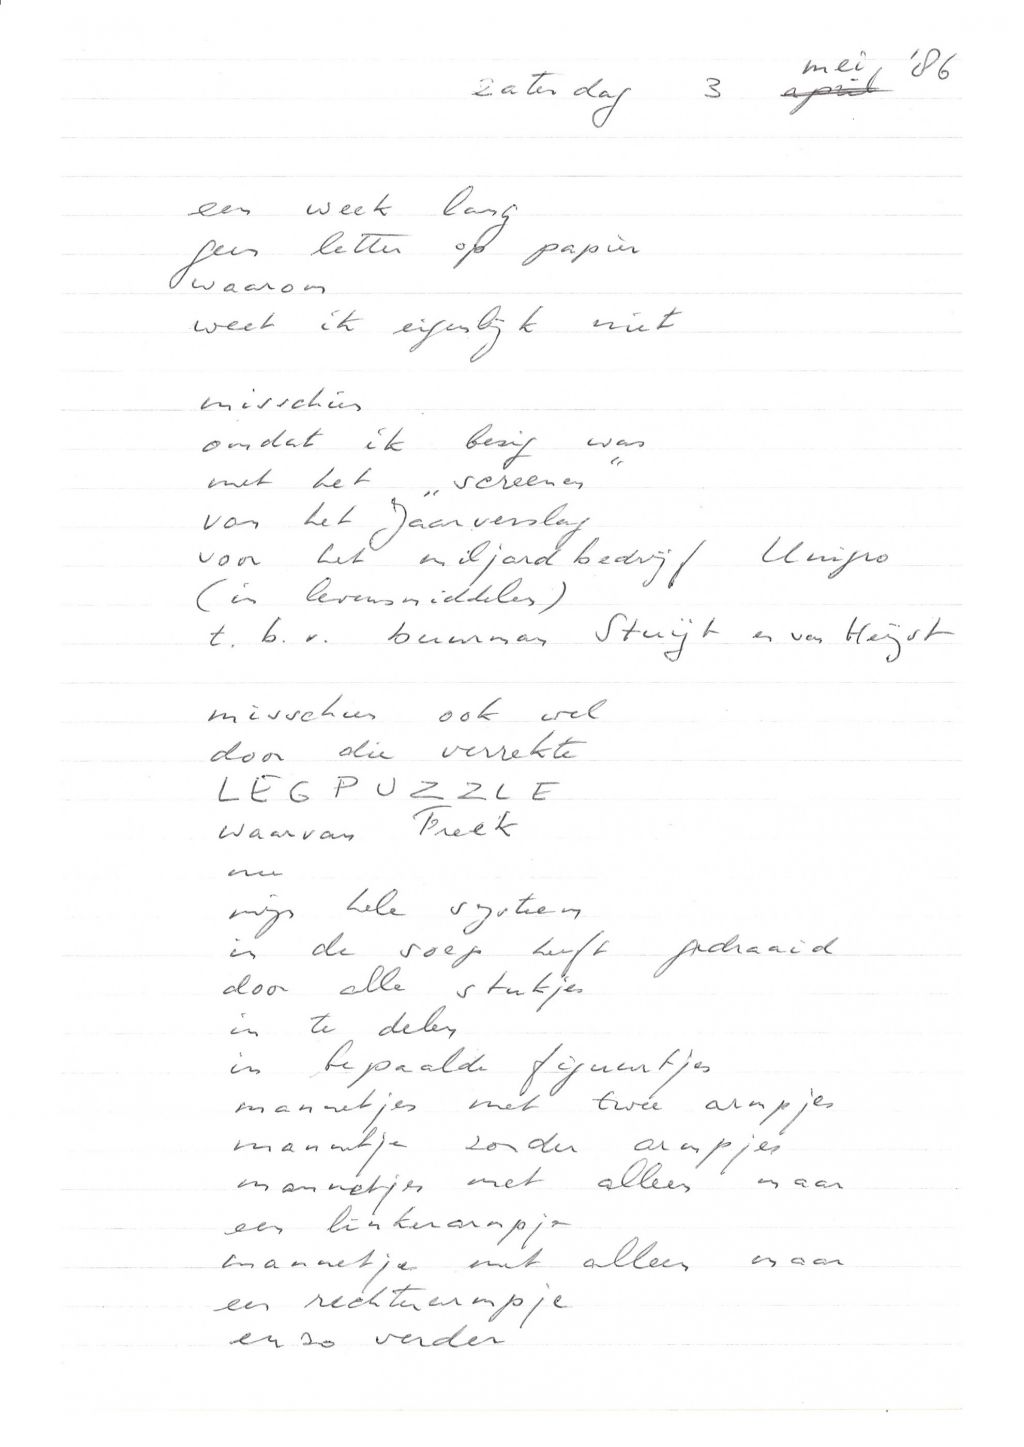 zaterdag 3 april mei '86
een week lang
geen letter op papier
waarom
weet ik eigenlijk niet
misschien
omdat ik bezig was
met het „screenen“
van het Jaarverslag
voor het miljardbedrijf Unigro
(in levensmiddelen)
t. b. v. buurman Stuijt en van Heijst
misschien ook wel
door die verrekte
LEGPUZZLE
waarvan Freek
nu
mijn hele systeem
in de soep heeft gedraaid
door alle stukjes
in te delen
in bepaalde figuurtjes
mannetjes met twee armpjes
mannetje zonder armpjes
mannetjes met alleen maar
een linkerarmpje
mannetje met alleen maar
een rechterarmpje
en zo verder